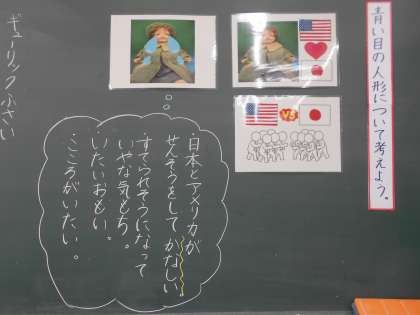 青い目の人形について考えよう。
VS
日本とアメリカが
せんそうをして かなしい。
すてられそうになって
いやな気もち。
いたいおもい。
こころがいたい。
ギューリックふさい